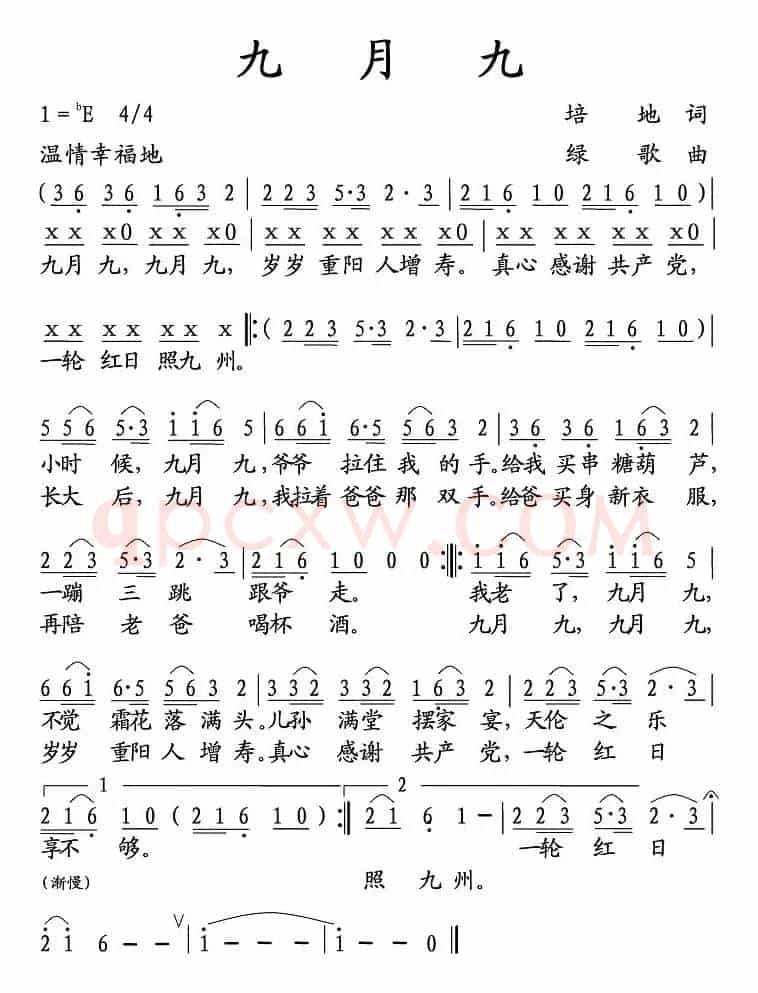 九 月 九
1 = ᵇE 4/4 培 地 词
温情幸福地 绿 歌 曲
( 3 6 3 6 1 6 3 2 | 2 2 3 5·3 2·3 | 2 1 6 1 0 2 1 6 1 0 ) |
x x x0 x x x0 | x x x x x x x0 | x x x x x x x0 |
九月 九, 九月 九, 岁岁 重阳 人增 寿。 真心 感谢 共产 党,
x x x x x x x ‖: ( 2 2 3 5·3 2·3 | 2 1 6 1 0 2 1 6 1 0 ) |
一轮 红日 照九 州。
5 5 6 5·3 i i 6 5 | 6 6 i 6·5 5 6 3 2 | 3 6 3 6 1 6 3 2 |
小时 候, 九月 九, 爷爷 拉住 我 的 手。 给我 买串 糖葫 芦,
长大 后, 九月 九, 我拉着 爸爸 那 双 手。 给爸 买身 新衣 服,
qpcxw.COM
2 2 3 5·3 2·3 | 2 1 6 1 0 0 0 :‖: i i 6 5·3 i i 6 5 |
一蹦 三 跳 跟爷 走。 我老 了, 九月 九,
再陪 老 爸 喝杯 酒。 九月 九, 九月 九,
6 6 i 6·5 5 6 3 2 | 3 3 2 3 3 2 1 6 3 2 | 2 2 3 5·3 2·3 |
不觉 霜花 落 满 头。 儿孙 满堂 摆家 宴, 天伦 之 乐
岁岁 重阳 人 增 寿。 真心 感谢 共产 党, 一轮 红 日
1 2
2 1 6 1 0 ( 2 1 6 1 0 ) :‖ 2 1 6 1 – | 2 2 3 5·3 2·3 |
享不 够。 一轮 红 日
(渐慢) 照 九 州。
2 i 6 – – ∨ | i – – i | i – – 0 ‖